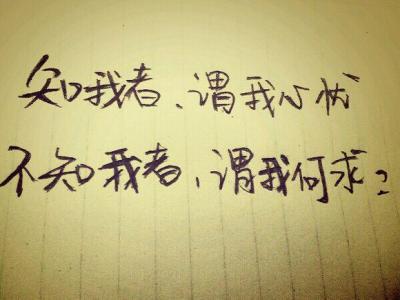 知我者、谓我心忧
不知我者、谓我何求?